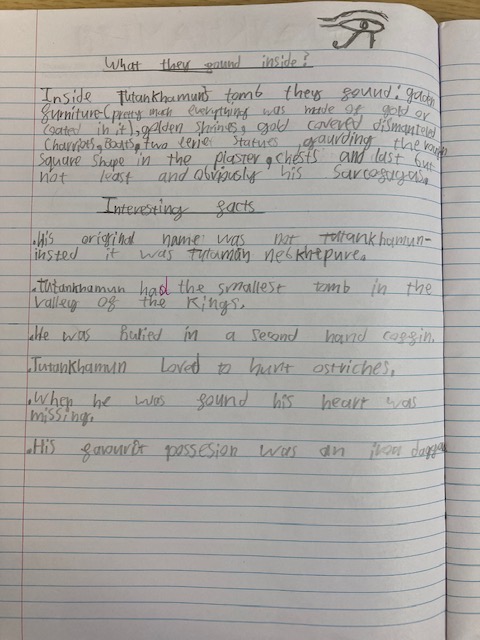 What they found inside?
Inside Tutankhamun's tomb they found: golden
furniture (pretty much everything was made of gold or
coated in it), golden shrines, gold covered dismanteled
Charriots, Boats, two statues gaurding the
Square Shape in the plaster, chests and last but
not least and obviously his Sarcofugas.
Interesting facts
.His original name was not Tutankhamun-
insted it was
.Tutankhamun had the smallest tomb in the
Valley of the Kings.
.He was buried in a second hand coffin.
.Tutankhamun Loved to hunt ostriches.
.When he was found his heart was
missing.
.His favourit possesion was an iron